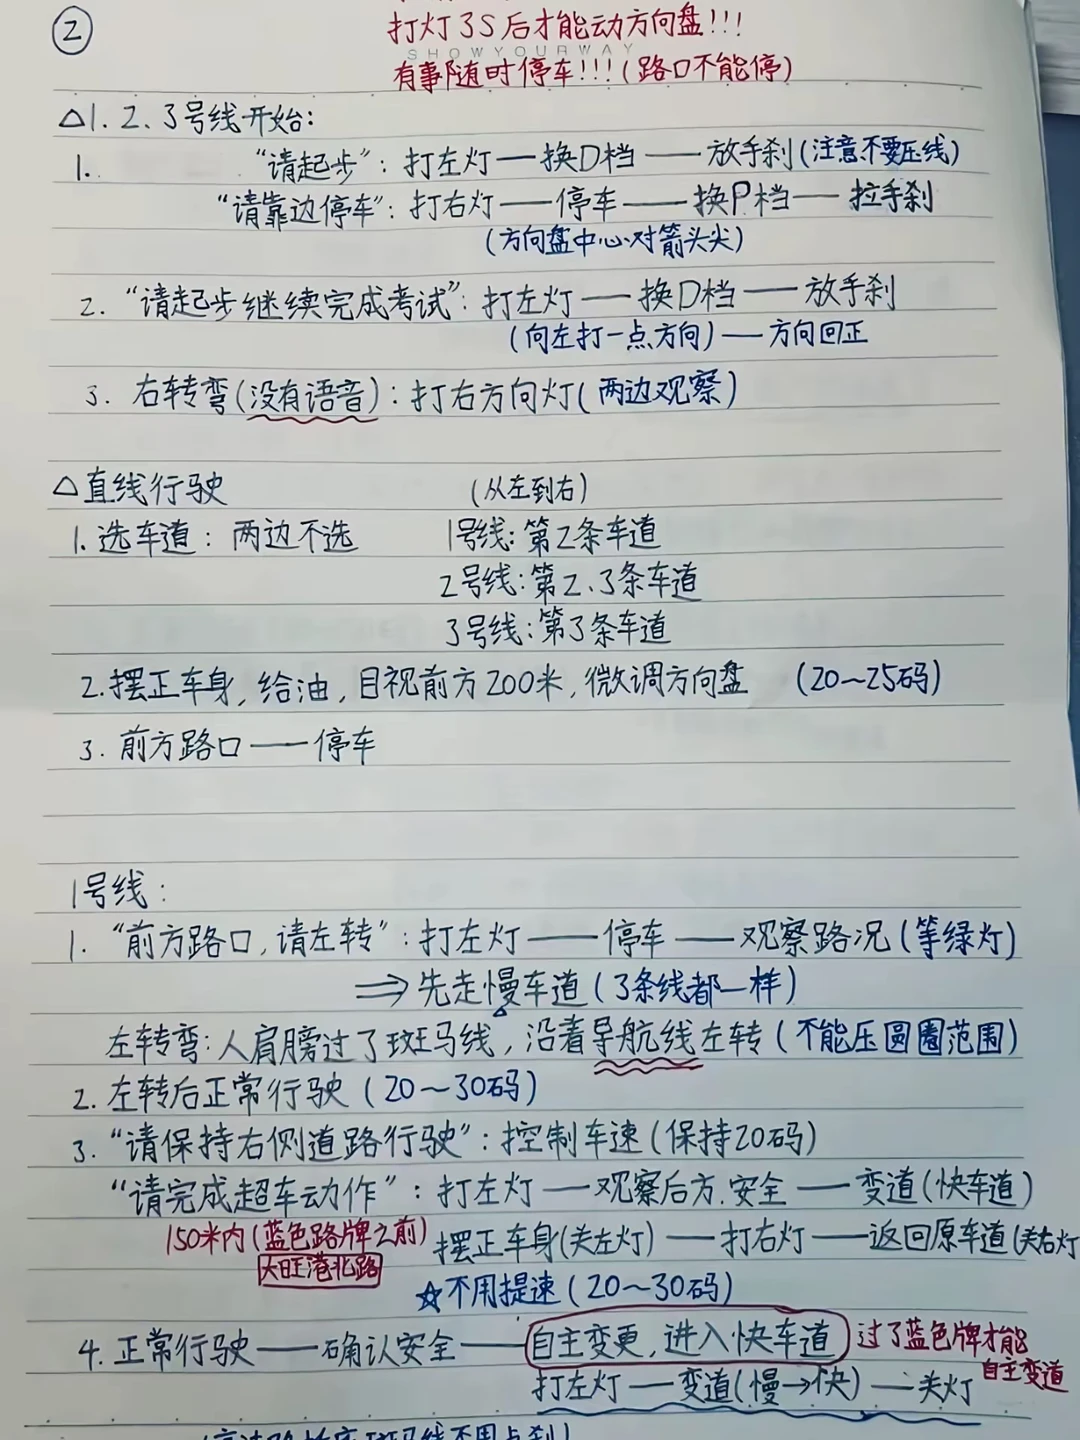 ②
打灯3S后才能动方向盘!!!
SHOWYOURWAY
有事随时停车!!!(路口不能停)
△1.2.3号线开始:
1. “请起步”: 打左灯——换D档——放手刹(注意不要压线)
“请靠边停车”: 打右灯——停车——换P档——拉手刹
(方向盘中心对箭头尖)
2. “请起步继续完成考试”: 打左灯——换D档——放手刹
(向左打一点方向)——方向回正
3. 右转弯(没有语音): 打右方向灯(两边观察)
△直线行驶 (从左到右)
1. 选车道: 两边不选 1号线: 第2条车道
2号线: 第2、3条车道
3号线: 第3条车道
2. 摆正车身, 给油, 目视前方200米, 微调方向盘 (20~25码)
3. 前方路口——停车
1号线:
1. “前方路口, 请左转”: 打左灯——停车——观察路况(等绿灯)
⇒先走慢车道(3条线都一样)
左转弯: 人肩膀过了斑马线, 沿着导航线左转(不能压圆圈范围)
2. 左转后正常行驶(20~30码)
3. “请保持右侧道路行驶”: 控制车速(保持20码)
“请完成超车动作”: 打左灯——观察后方.安全——变道(快车道)
150米内(蓝色路牌之前) 摆正车身(关左灯)——打右灯——返回原车道(关右灯
大旺港北路
☆不用提速(20~30码)
4. 正常行驶——确认安全——自主变更, 进入快车道 过了蓝色牌才能
自主变道
打左灯——变道(慢→快)——关灯